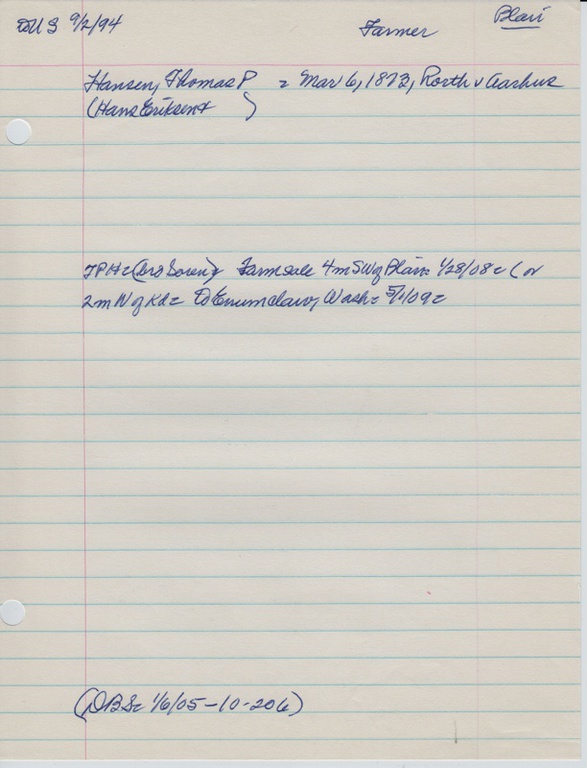 DUS 9/2/94 Farmer Blair
Hansen, Thomas P = Mar 6, 1873, Rorth v Aarhus
(Hans Eriksen + )
TPH = (bro Soren) Farm sale 4m SW of Blair = 1/28/08 = (or
2m N of Kd = To Enumclaw, Wash = 5/1/09 =
(DBS = 1/6/05-10-206)